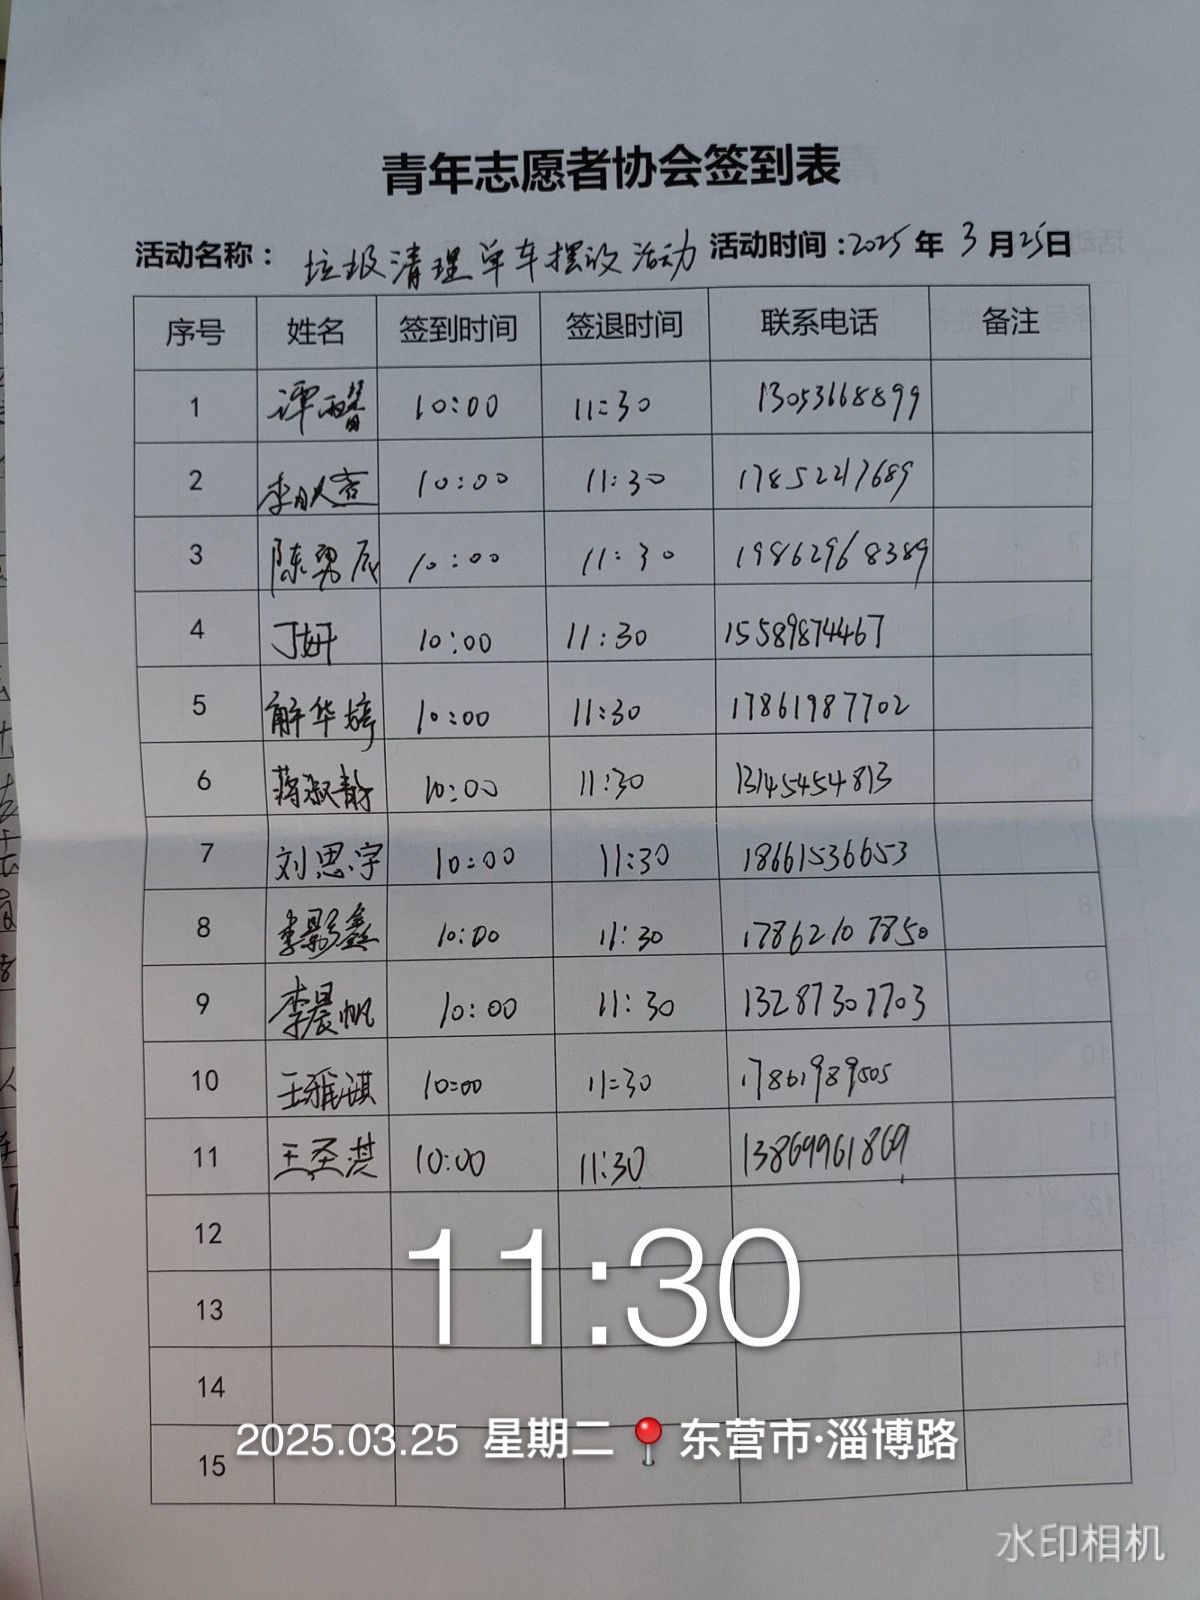 青年志愿者协会签到表
活动名称： 垃圾清理单车摆放活动 活动时间：2025年3月25日
序号 姓名 签到时间 签退时间 联系电话 备注
1 谭 10:00 11:30 13053668899
2 李 10:00 11:30 17852217689
3 陈勇辰 10:00 11:30 19862968389
4 丁妍 10:00 11:30 15589874467
5 解华婷 10:00 11:30 17861987702
6 蒋淑静 10:00 11:30 13145454813
7 刘思宇 10:00 11:30 18661536653
8 李影鑫 10:00 11:30 17862107850
9 李晨帆 10:00 11:30 13287307703
10 王雅淇 10:00 11:30 17861989505
11 王圣淇 10:00 11:30 13869961869
12
13
14
15
11:30
2025.03.25 星期二 东营市·淄博路
水印相机